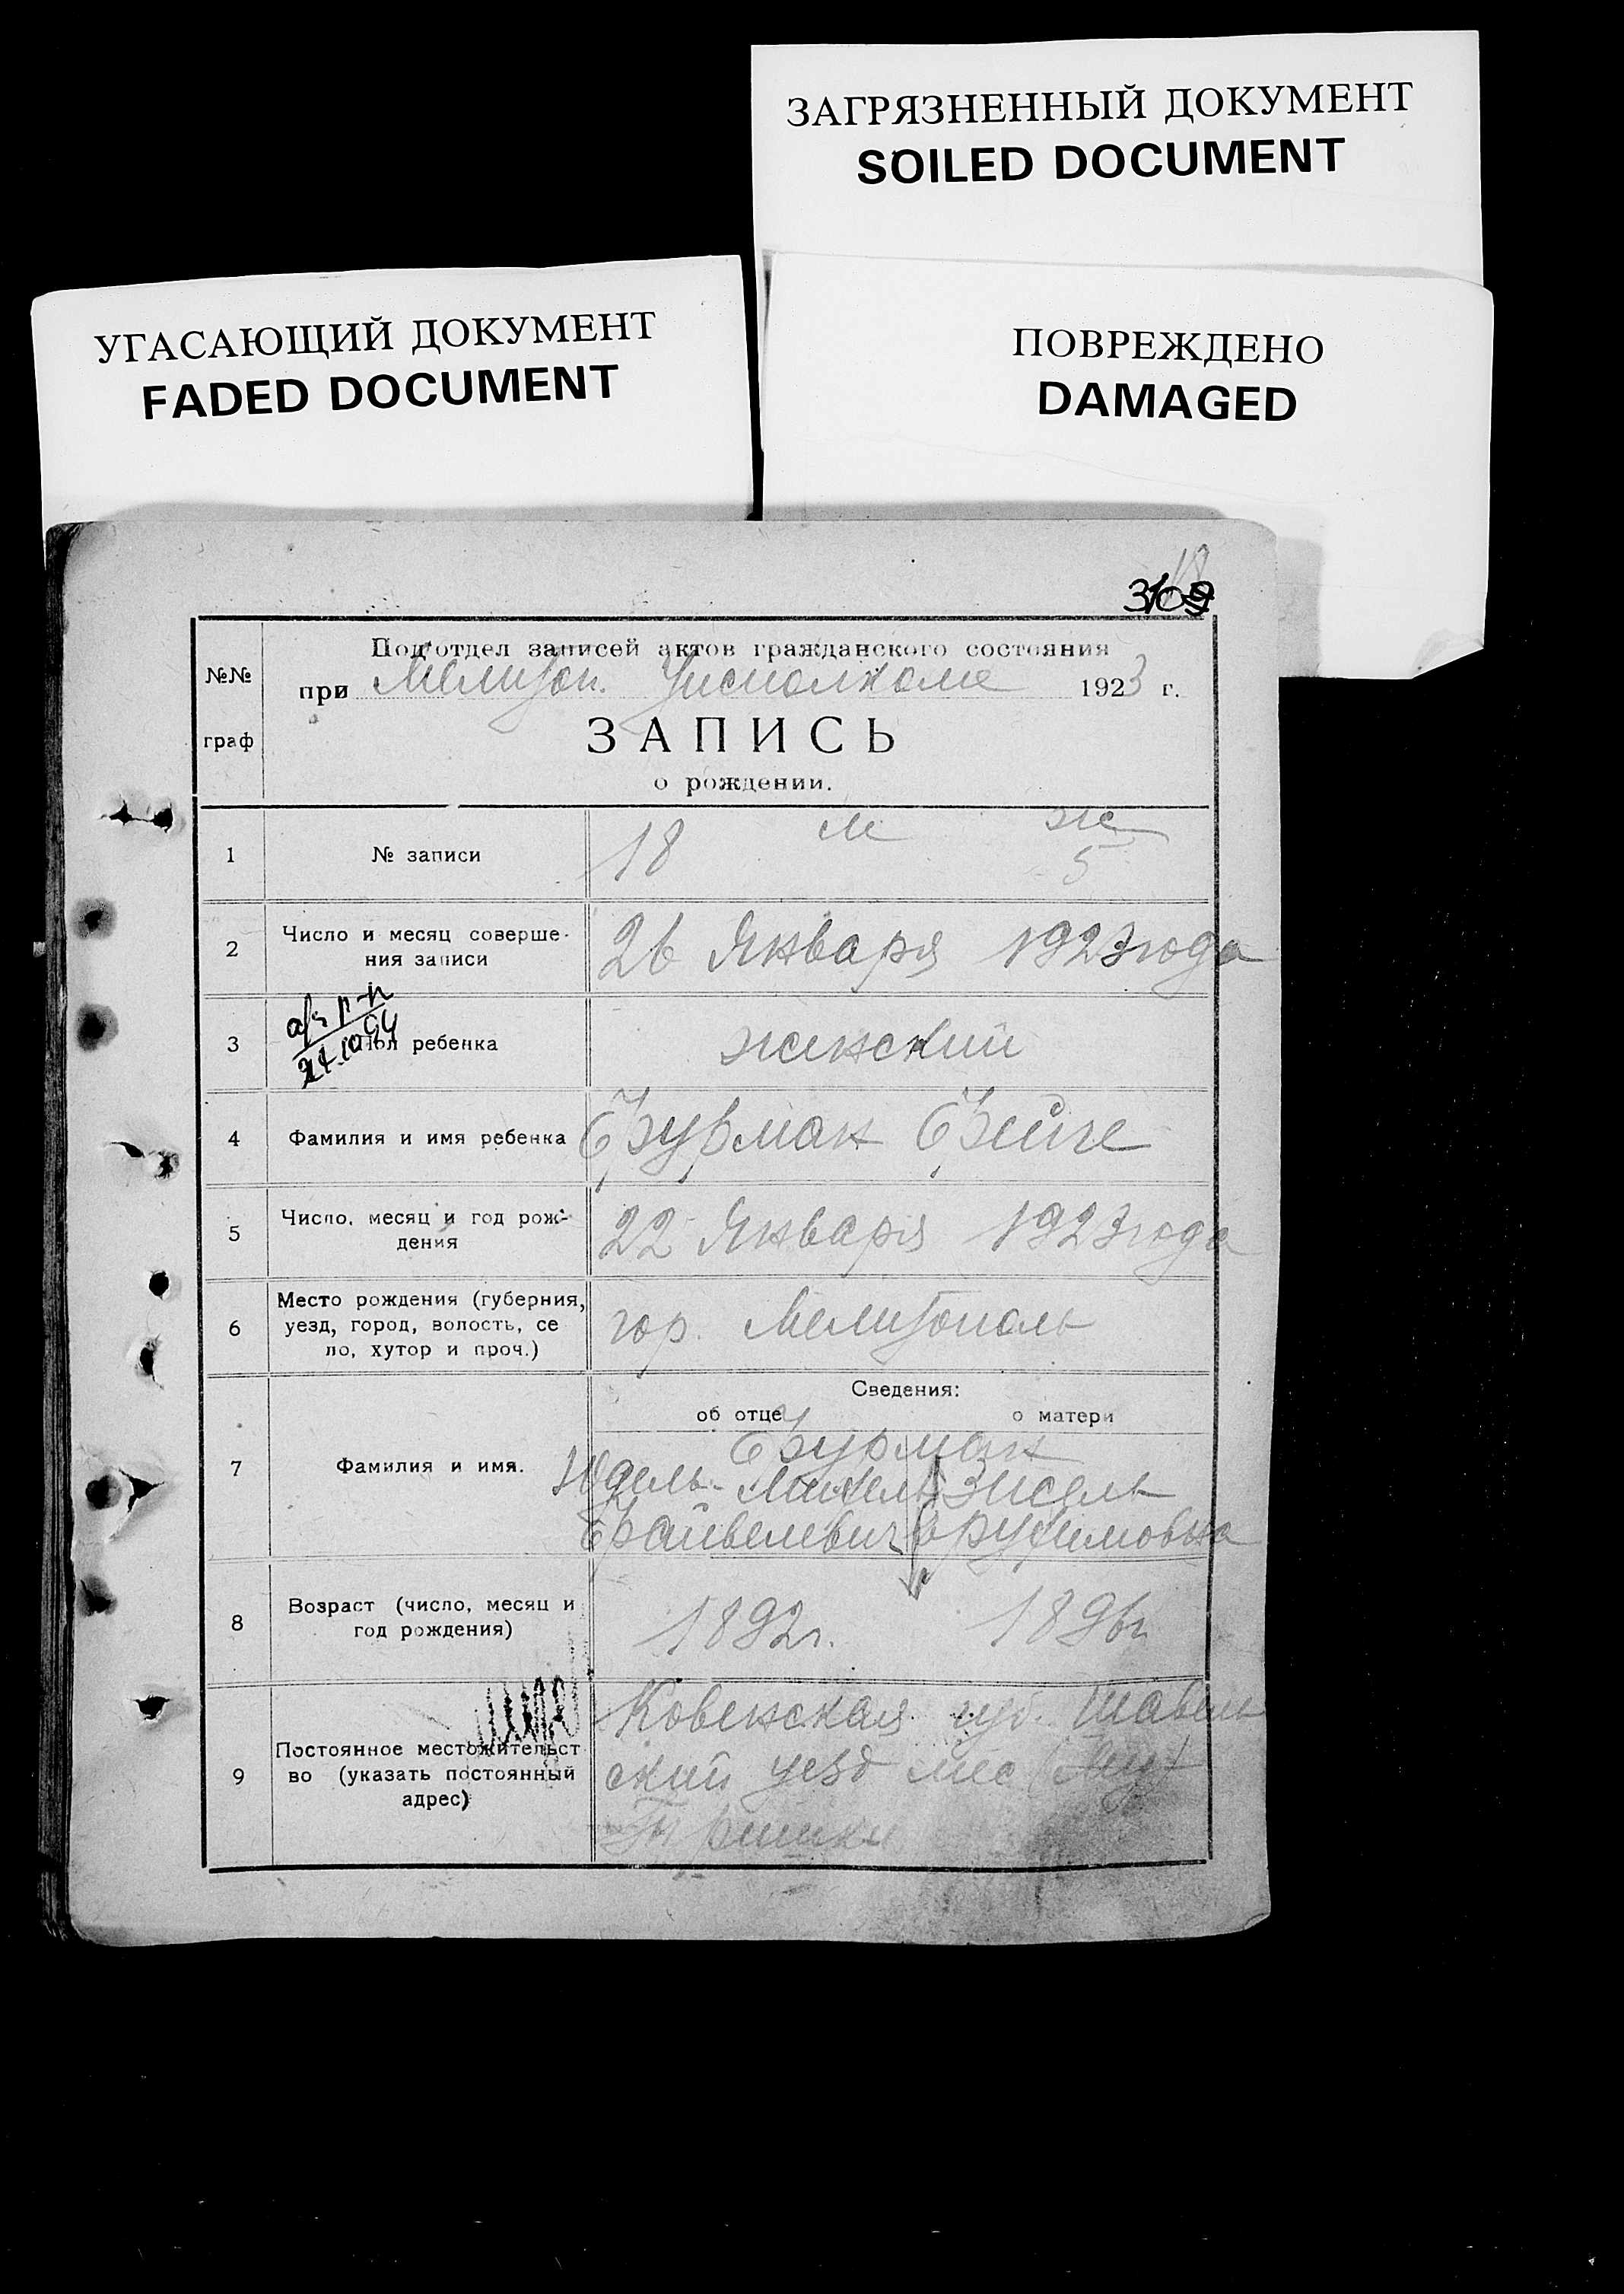 ЗАГРЯЗНЕННЫЙ ДОКУМЕНТ
SOILED DOCUMENT
УГАСАЮЩИЙ ДОКУМЕНТ
FADED DOCUMENT
ПОВРЕЖДЕНО
DAMAGED
18
№№ граф
Подотдел записей актов гражданского состояния
при Мелитоп. Уисполкоме 1923 г.
ЗАПИСЬ
о рождении.
м ж
1 № записи 18 5
2 Число и месяц соверше-
ния записи
26 Января 1923 года
3 Пол ребенка женский
4 Фамилия и имя ребенка Фурман Фейге
5 Число, месяц и год рож-
дения
22 Января 1923 года
6 Место рождения (губерния,
уезд, город, волость, се
ло, хутор и проч.)
гор. Мелитополь
Сведения:
об отце о матери
7 Фамилия и имя.
Фурман
Юдель-Михель Зисель
Файвелевич Ерухимовна
8 Возраст (число, месяц и
год рождения)
1892г. 1896г
9 Постоянное местожительст
во (указать постоянный
адрес)
Ковенская губ. Шавель
ский уезд мес